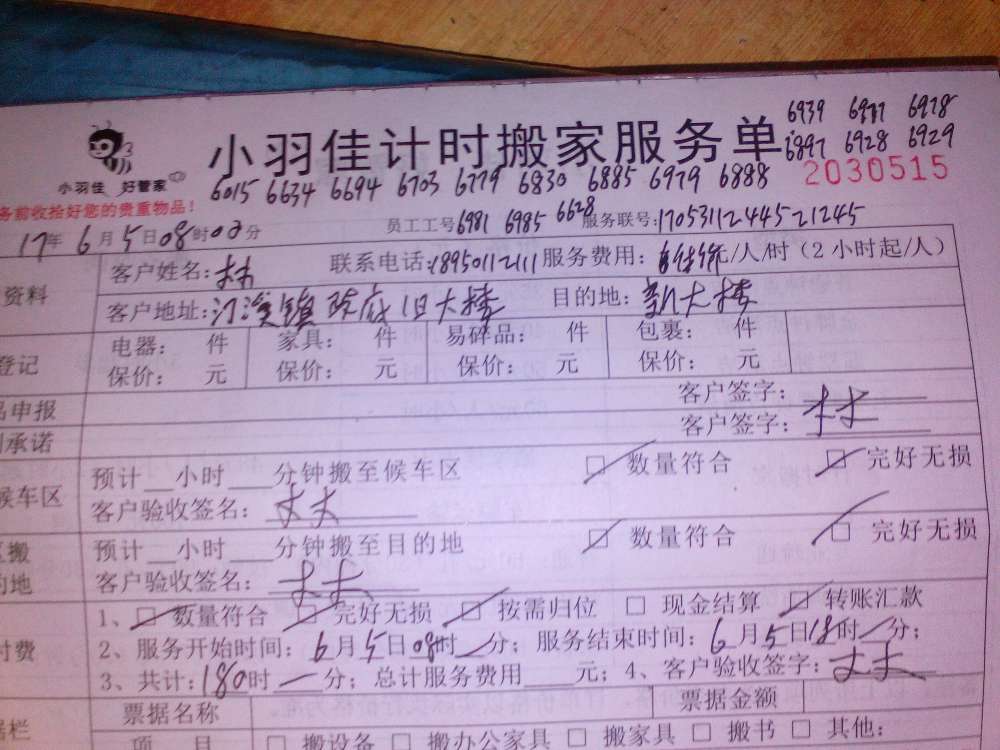 6939 6911 6918
小羽佳计时搬家服务单 6897 6928 6929
小羽佳 好管家
6015 6634 6694 6703 6779 6830 6885 6979 6888 2030515
务前收拾好您的贵重物品!
17年6月5日08时00分 员工工号6981 6985 6628 服务联号:1705311244521245
资料 客户姓名:林 联系电话:18950112111 服务费用: 元/人/时(2小时起/人)
客户地址: 镇政府旧大楼 目的地:新大楼
登记 电器: 件 家具: 件 易碎品: 件 包裹: 件
保价: 元 保价: 元 保价: 元 保价: 元
品申报 客户签字:
承诺 客户签字: 林
候车区 预计 小时 分钟搬至候车区 □ 数量符合 □ 完好无损
客户验收签名: 林
搬 预计 小时 分钟搬至目的地 □ 数量符合 □ 完好无损
的地 客户验收签名: 林
1、□ 数量符合 □ 完好无损 □ 按需归位 □ 现金结算 □ 转账汇款
付费 2、服务开始时间:6月5日08时 分;服务结束时间:6月5日18时 分;
3、共计:180时 分;总计服务费用 元;4、客户验收签字: 林
据栏 票据名称 票据金额
项 目 □ 搬设备 □ 搬办公家具 □ 搬家具 □ 搬书 □ 其他: